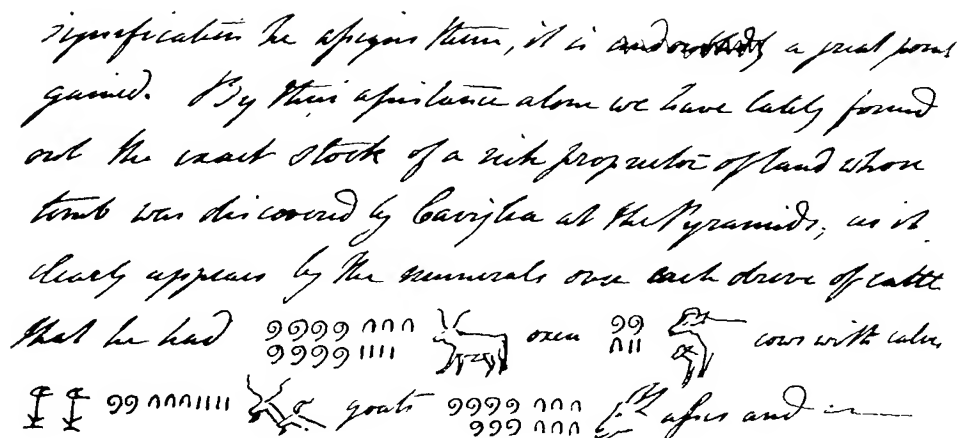 signification he assigns them, it is a great point
gained. By this assistance alone we have lately found
out the exact stock of a rich proprietor of land whose
tomb was discovered by Caviglia at the Pyramids, as it
clearly appears by the numerals over each drove of cattle
that he had 𓍢𓍢𓍢𓍢𓍢𓍢𓍢𓍢𓎆𓎆𓎆𓏺𓏺𓏺𓏺 oxen 𓍢𓍢𓎆𓏺𓏺 cows with calves
𓆼𓆼𓍢𓍢𓎆𓎆𓎆𓏺𓏺𓏺𓏺 goats 𓍢𓍢𓍢𓍢𓍢𓍢𓍢𓎆𓎆𓎆𓎆𓎆𓎆 asses and